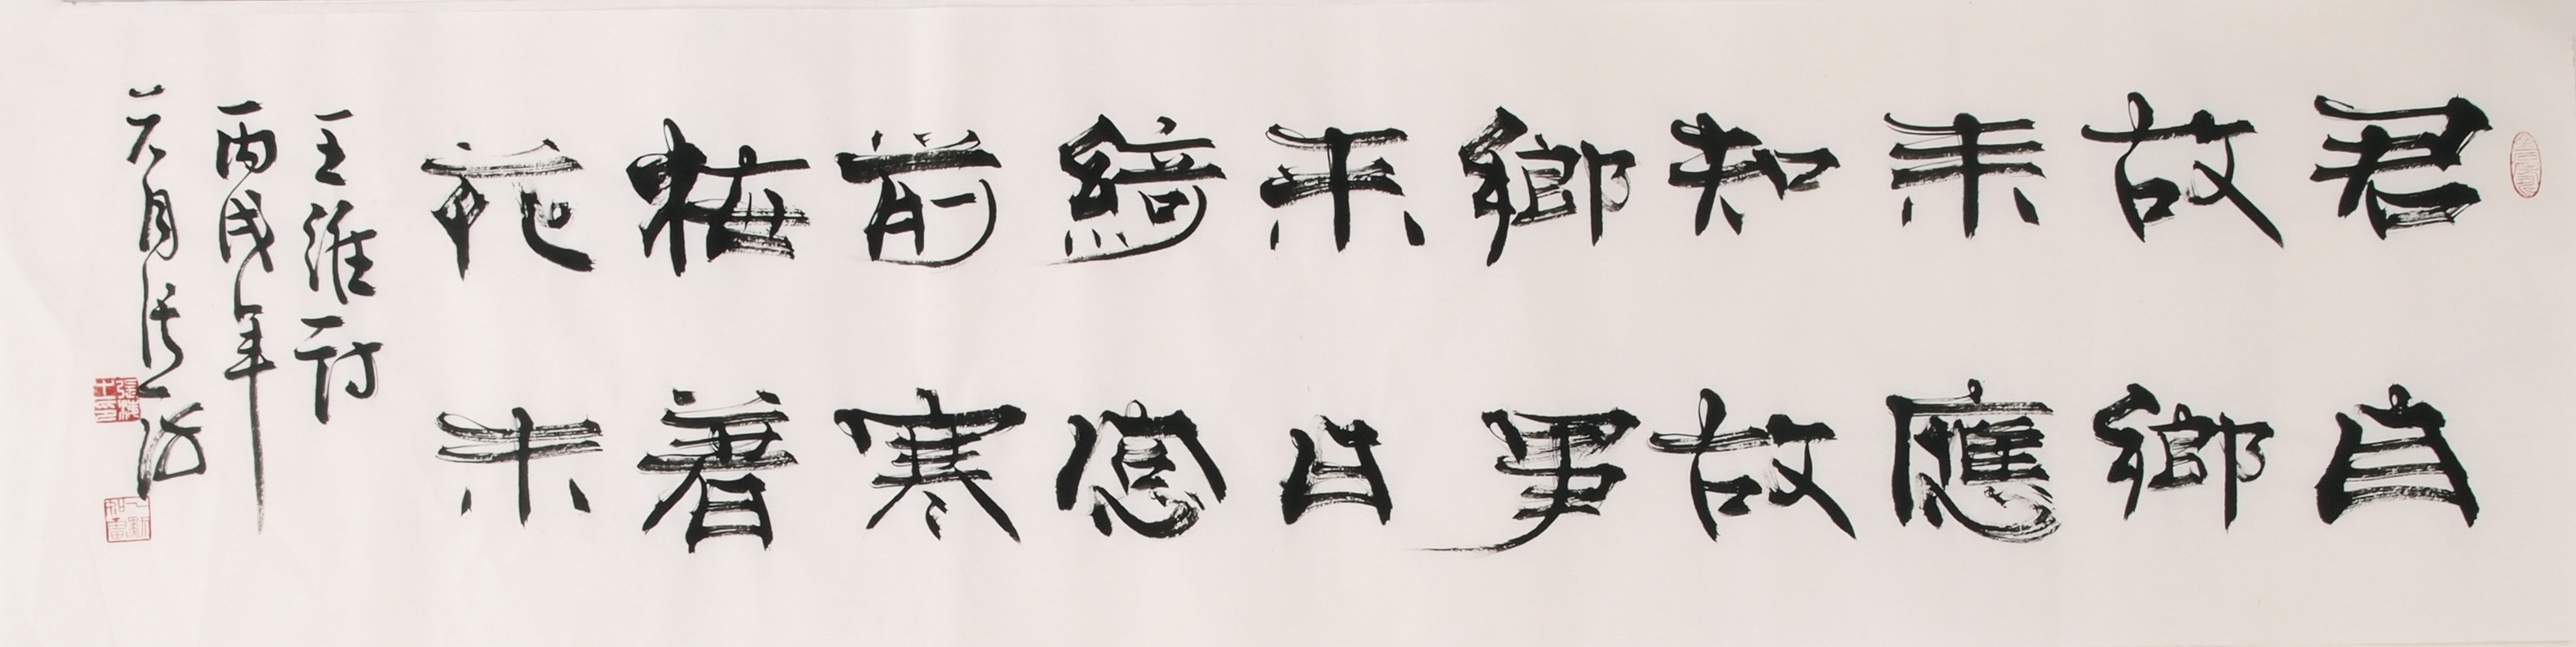 君自
故鄉
来應
知故
鄉事
来日
綺窓
前寒
梅著
花未
王維詩
丙戌年
元月張